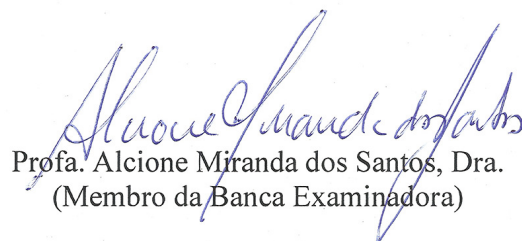 Alcione Miranda dos Santos
Profa. Alcione Miranda dos Santos, Dra.
(Membro da Banca Examinadora)